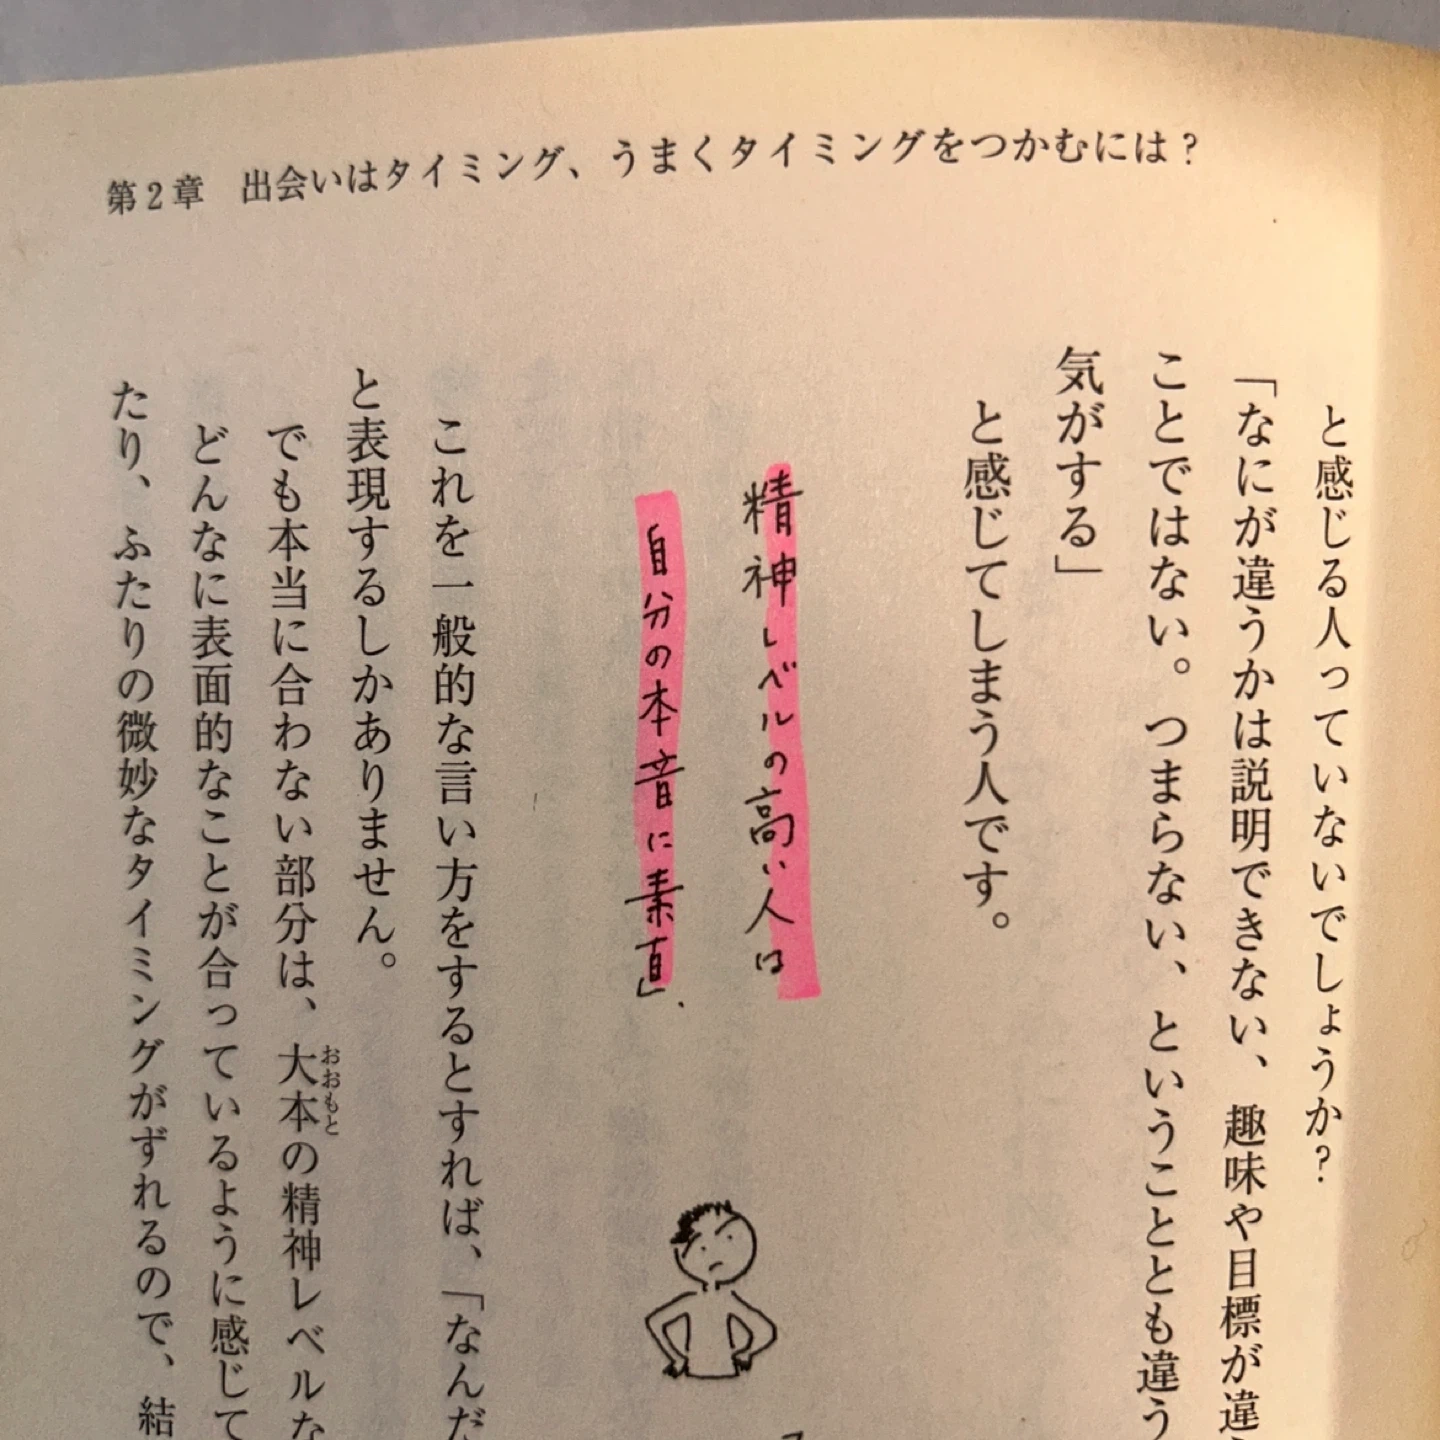 第2章　出会いはタイミング、うまくタイミングをつかむには？
と感じる人っていないでしょうか？
「なにが違うかは説明できない、趣味や目標が違
ことではない。つまらない、ということとも違う
気がする」
と感じてしまう人です。
精神レベルの高い人は
自分の本音に素直」.
これを一般的な言い方をするとすれば、「なんだ
と表現するしかありません。
でも本当に合わない部分は、大本の精神レベルな
おおもと
どんなに表面的なことが合っているように感じて
たり、ふたりの微妙なタイミングがずれるので、結